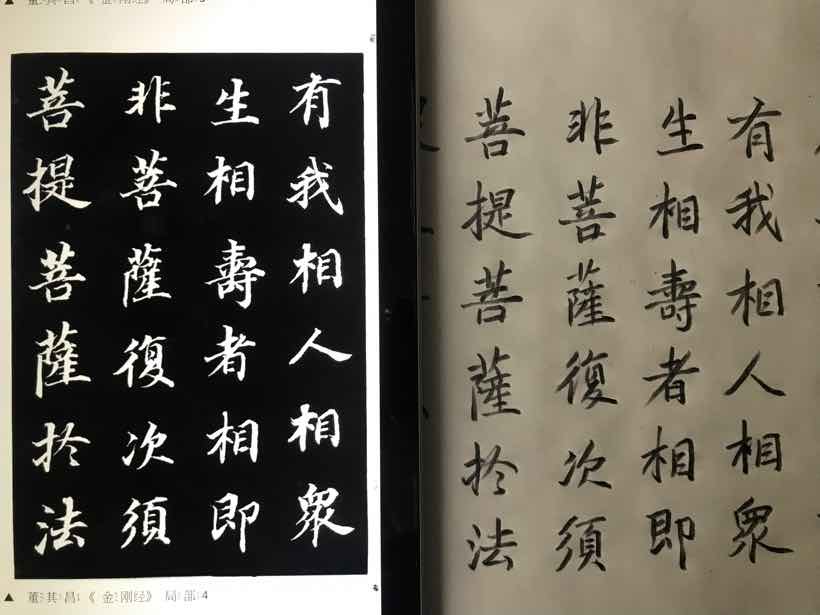 ▲ 董其昌《金刚经》局部3
有我相人相眾
生相壽者相即
非菩薩復次須
菩提菩薩扵法
▲ 董其昌《金刚经》局部4
有我相人相眾
生相壽者相即
非菩薩復次須
菩提菩薩扵法